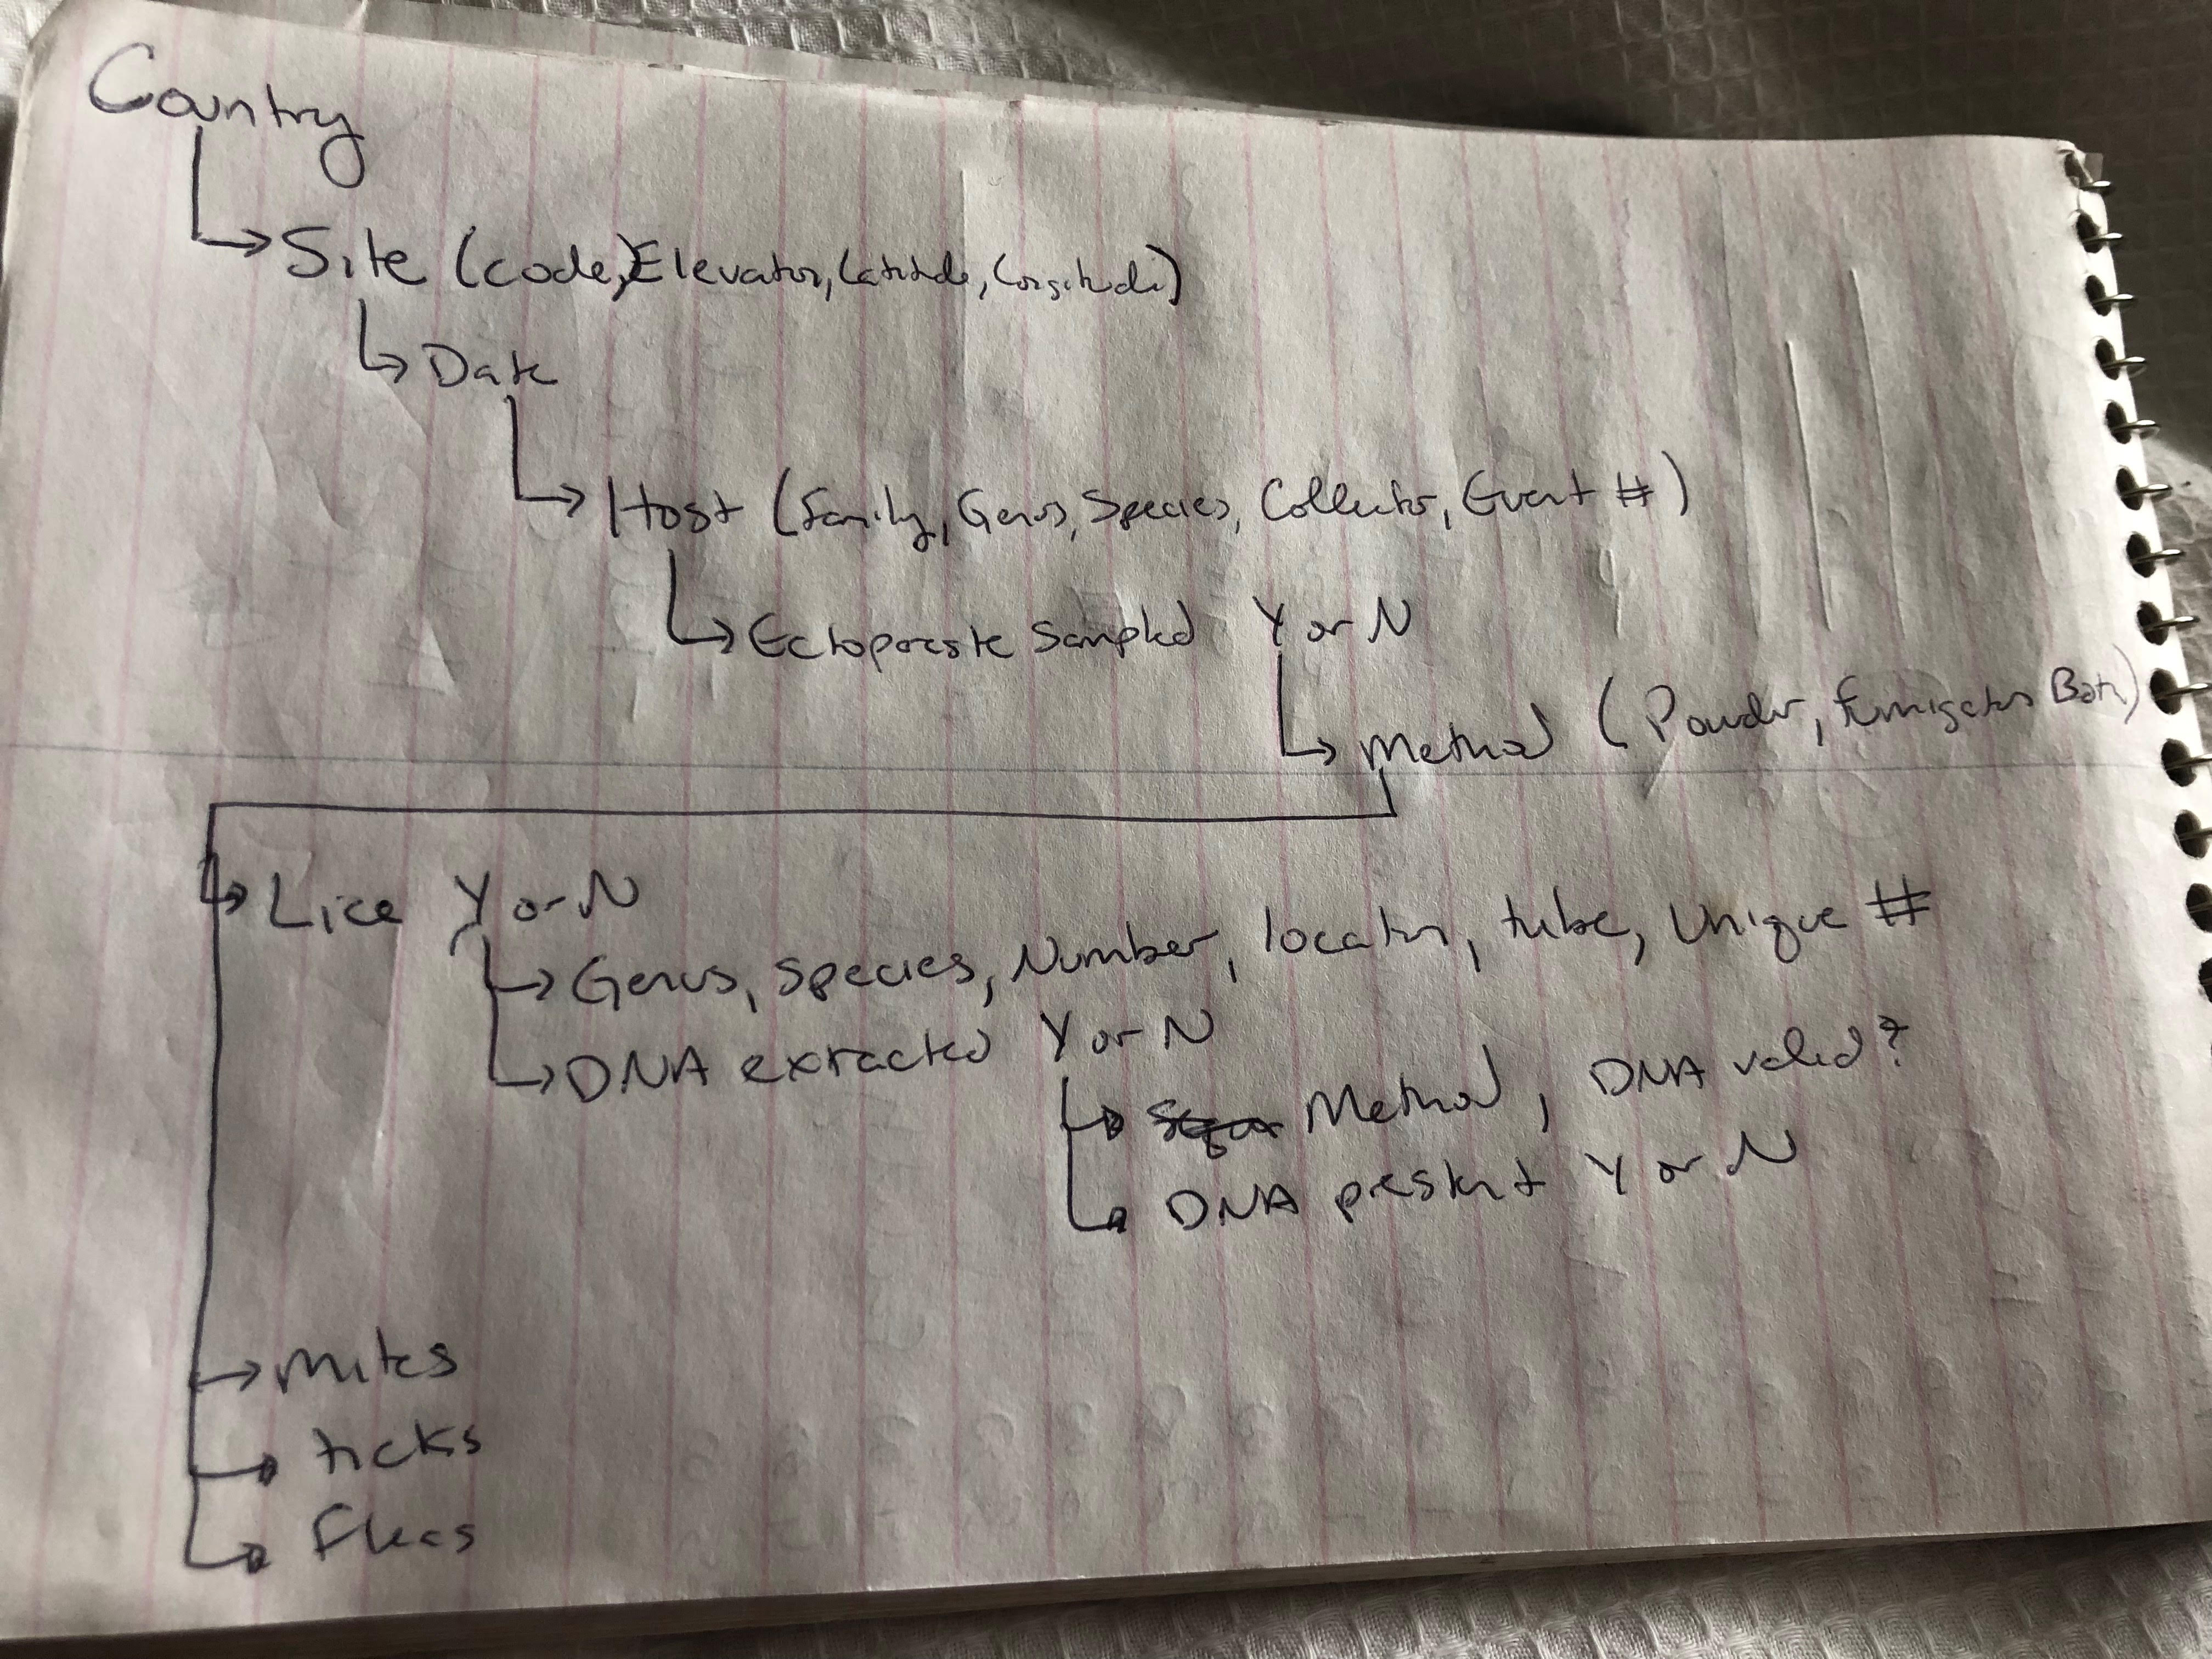 Country
Site (code, Elevation, Latitude, Longitude)
Date
Host (Family, Genus, Species, Collector, Event #)
Ectoparasite Sampled Y or N
Method (Powder, Fumigation, Both)
Lice Y or N
Genus, Species, Number, location, tube, Unique #
DNA extracted Y or N
Method, DNA valid?
DNA present Y or N
Mites
ticks
fleas